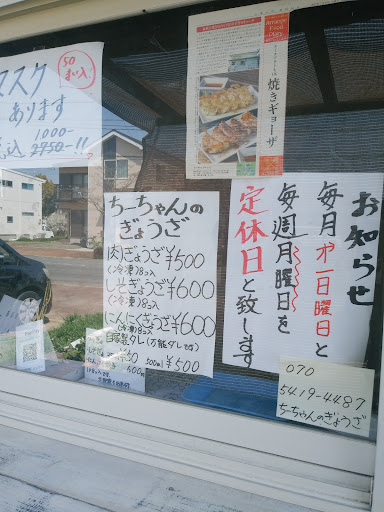 50
まい入
マスク
あります
1.000-
税込 2950-!!
焼きギョーザ
ちーちゃんの
ぎょうざ
肉ぎょうざ¥500
(冷凍)8コ入
しそぎょうざ¥600
(冷凍)8コ入
にんにくぎょうざ¥600
(冷凍)8コ入
自家製タレ(万能ダレです)
500ml ¥500
お知らせ
毎月オ一日曜日と
毎週月曜日を
定休日と致します
070
5419-4487
ちーちゃんのぎょうざ